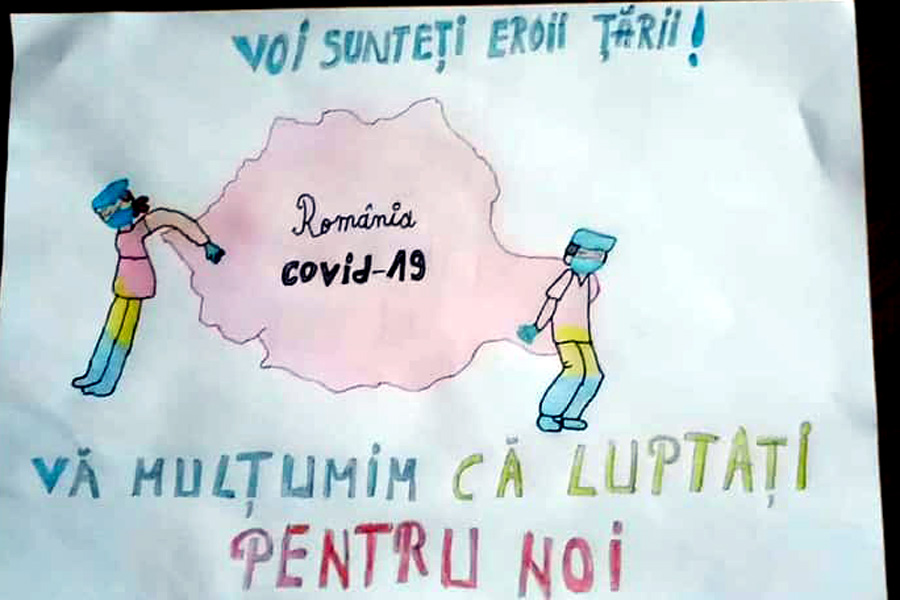 VOI SUNTEȚI EROII ȚĂRII!
România
covid-19
VĂ MULȚUMIM CĂ LUPTAȚI
PENTRU NOI